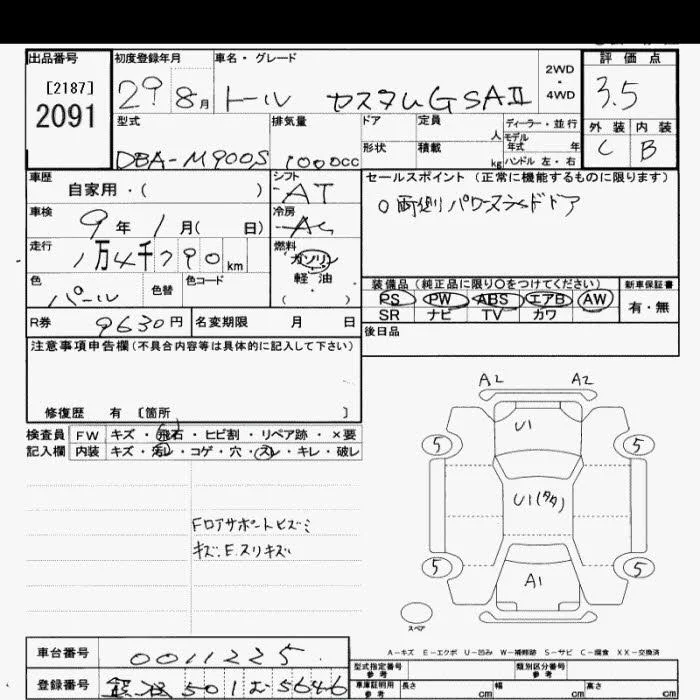 出品番号 初度登録年月 車名・グレード 評価点
[2187] 2091 29 8月 トール カスタムGSAⅡ 2WD・4WD 3.5
型式 排気量 ドア 定員 人 ディーラー・並行 モデル年式 年 外装 内装
DBA-M900S 1000cc 形状 積載 kg ハンドル 左・右 C B
車歴 自家用・( ) シフト AT セールスポイント (正常に機能するものに限ります)
車検 9年 1月( 日) 冷房 AC ○両側パワースライドドア
走行 1万4千790km 燃料 ガソリン
色 パール 色替 色コード 軽油 ( ・ ) 装備品 (純正品に限り○をつけてください) 新車保証書
PS PW ABS エアB AW 有・無
SR ナビ TV カワ
R券 9630円 名変期限 月 日 後日品
注意事項申告欄(不具合内容等は具体的に記入して下さい)
修復歴 有 〔箇所 〕
検査員 FW キズ・飛石・ヒビ割・リペア跡・×要
記入欄 内装 キズ・汚レ・コゲ・穴・スレ・キレ・破レ
A2 A2
U1
5 5
U1(タタ)
Fロアサポートヒズミ
キズ.E.スリキズ
5 5
A1
スペア
A-キズ E-エクボ U-凹み W-補修跡 S-サビ C-腐食 XX-交換済
車台番号 0011225
型式指定番号 参考 類別区分番号 参考
登録番号 501む5646
車庫証明用 参考 長さ cm 幅 cm 高さ cm